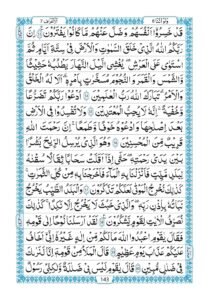 ولواننا ٨ الاعراف ٧
قَدْ خَسِرُوْٓا اَنْفُسَهُمْ وَضَلَّ عَنْهُمْ مَّا كَانُوْا يَفْتَرُوْنَ اِنَّ
رَبَّكُمُ اللّٰهُ الَّذِيْ خَلَقَ السَّمٰوٰتِ وَالْاَرْضَ فِيْ سِتَّةِ اَيَّامٍ ثُمَّ
اسْتَوٰى عَلَى الْعَرْشِ يُغْشِي الَّيْلَ النَّهَارَ يَطْلُبُهٗ حَثِيْثًا
وَّالشَّمْسَ وَالْقَمَرَ وَالنُّجُوْمَ مُسَخَّرٰتٍۢ بِاَمْرِهٖ اَلَا لَهُ الْخَلْقُ
وَالْاَمْرُ تَبٰرَكَ اللّٰهُ رَبُّ الْعٰلَمِيْنَ اُدْعُوْا رَبَّكُمْ تَضَرُّعًا
وَّخُفْيَةً اِنَّهٗ لَا يُحِبُّ الْمُعْتَدِيْنَ وَلَا تُفْسِدُوْا فِي الْاَرْضِ
بَعْدَ اِصْلَاحِهَا وَادْعُوْهُ خَوْفًا وَّطَمَعًا اِنَّ رَحْمَتَ اللّٰهِ
قَرِيْبٌ مِّنَ الْمُحْسِنِيْنَ وَهُوَ الَّذِيْ يُرْسِلُ الرِّيٰحَ بُشْرًۢا
بَيْنَ يَدَيْ رَحْمَتِهٖ حَتّٰٓى اِذَآ اَقَلَّتْ سَحَابًا ثِقَالًا سُقْنٰهُ
لِبَلَدٍ مَّيِّتٍ فَاَنْزَلْنَا بِهِ الْمَآءَ فَاَخْرَجْنَا بِهٖ مِنْ كُلِّ الثَّمَرٰتِ
كَذٰلِكَ نُخْرِجُ الْمَوْتٰى لَعَلَّكُمْ تَذَكَّرُوْنَ وَالْبَلَدُ الطَّيِّبُ يَخْرُجُ
نَبَاتُهٗ بِاِذْنِ رَبِّهٖ وَالَّذِيْ خَبُثَ لَا يَخْرُجُ اِلَّا نَكِدًا كَذٰلِكَ
نُصَرِّفُ الْاٰيٰتِ لِقَوْمٍ يَّشْكُرُوْنَ لَقَدْ اَرْسَلْنَا نُوْحًا اِلٰى قَوْمِهٖ
فَقَالَ يٰقَوْمِ اعْبُدُوا اللّٰهَ مَا لَكُمْ مِّنْ اِلٰهٍ غَيْرُهٗ اِنِّيْٓ اَخَافُ
عَلَيْكُمْ عَذَابَ يَوْمٍ عَظِيْمٍ قَالَ الْمَلَاُ مِنْ قَوْمِهٖٓ اِنَّا لَنَرٰىكَ
فِيْ ضَلٰلٍ مُّبِيْنٍ قَالَ يٰقَوْمِ لَيْسَ بِيْ ضَلٰلَةٌ وَّلٰكِنِّيْ رَسُوْلٌ
143